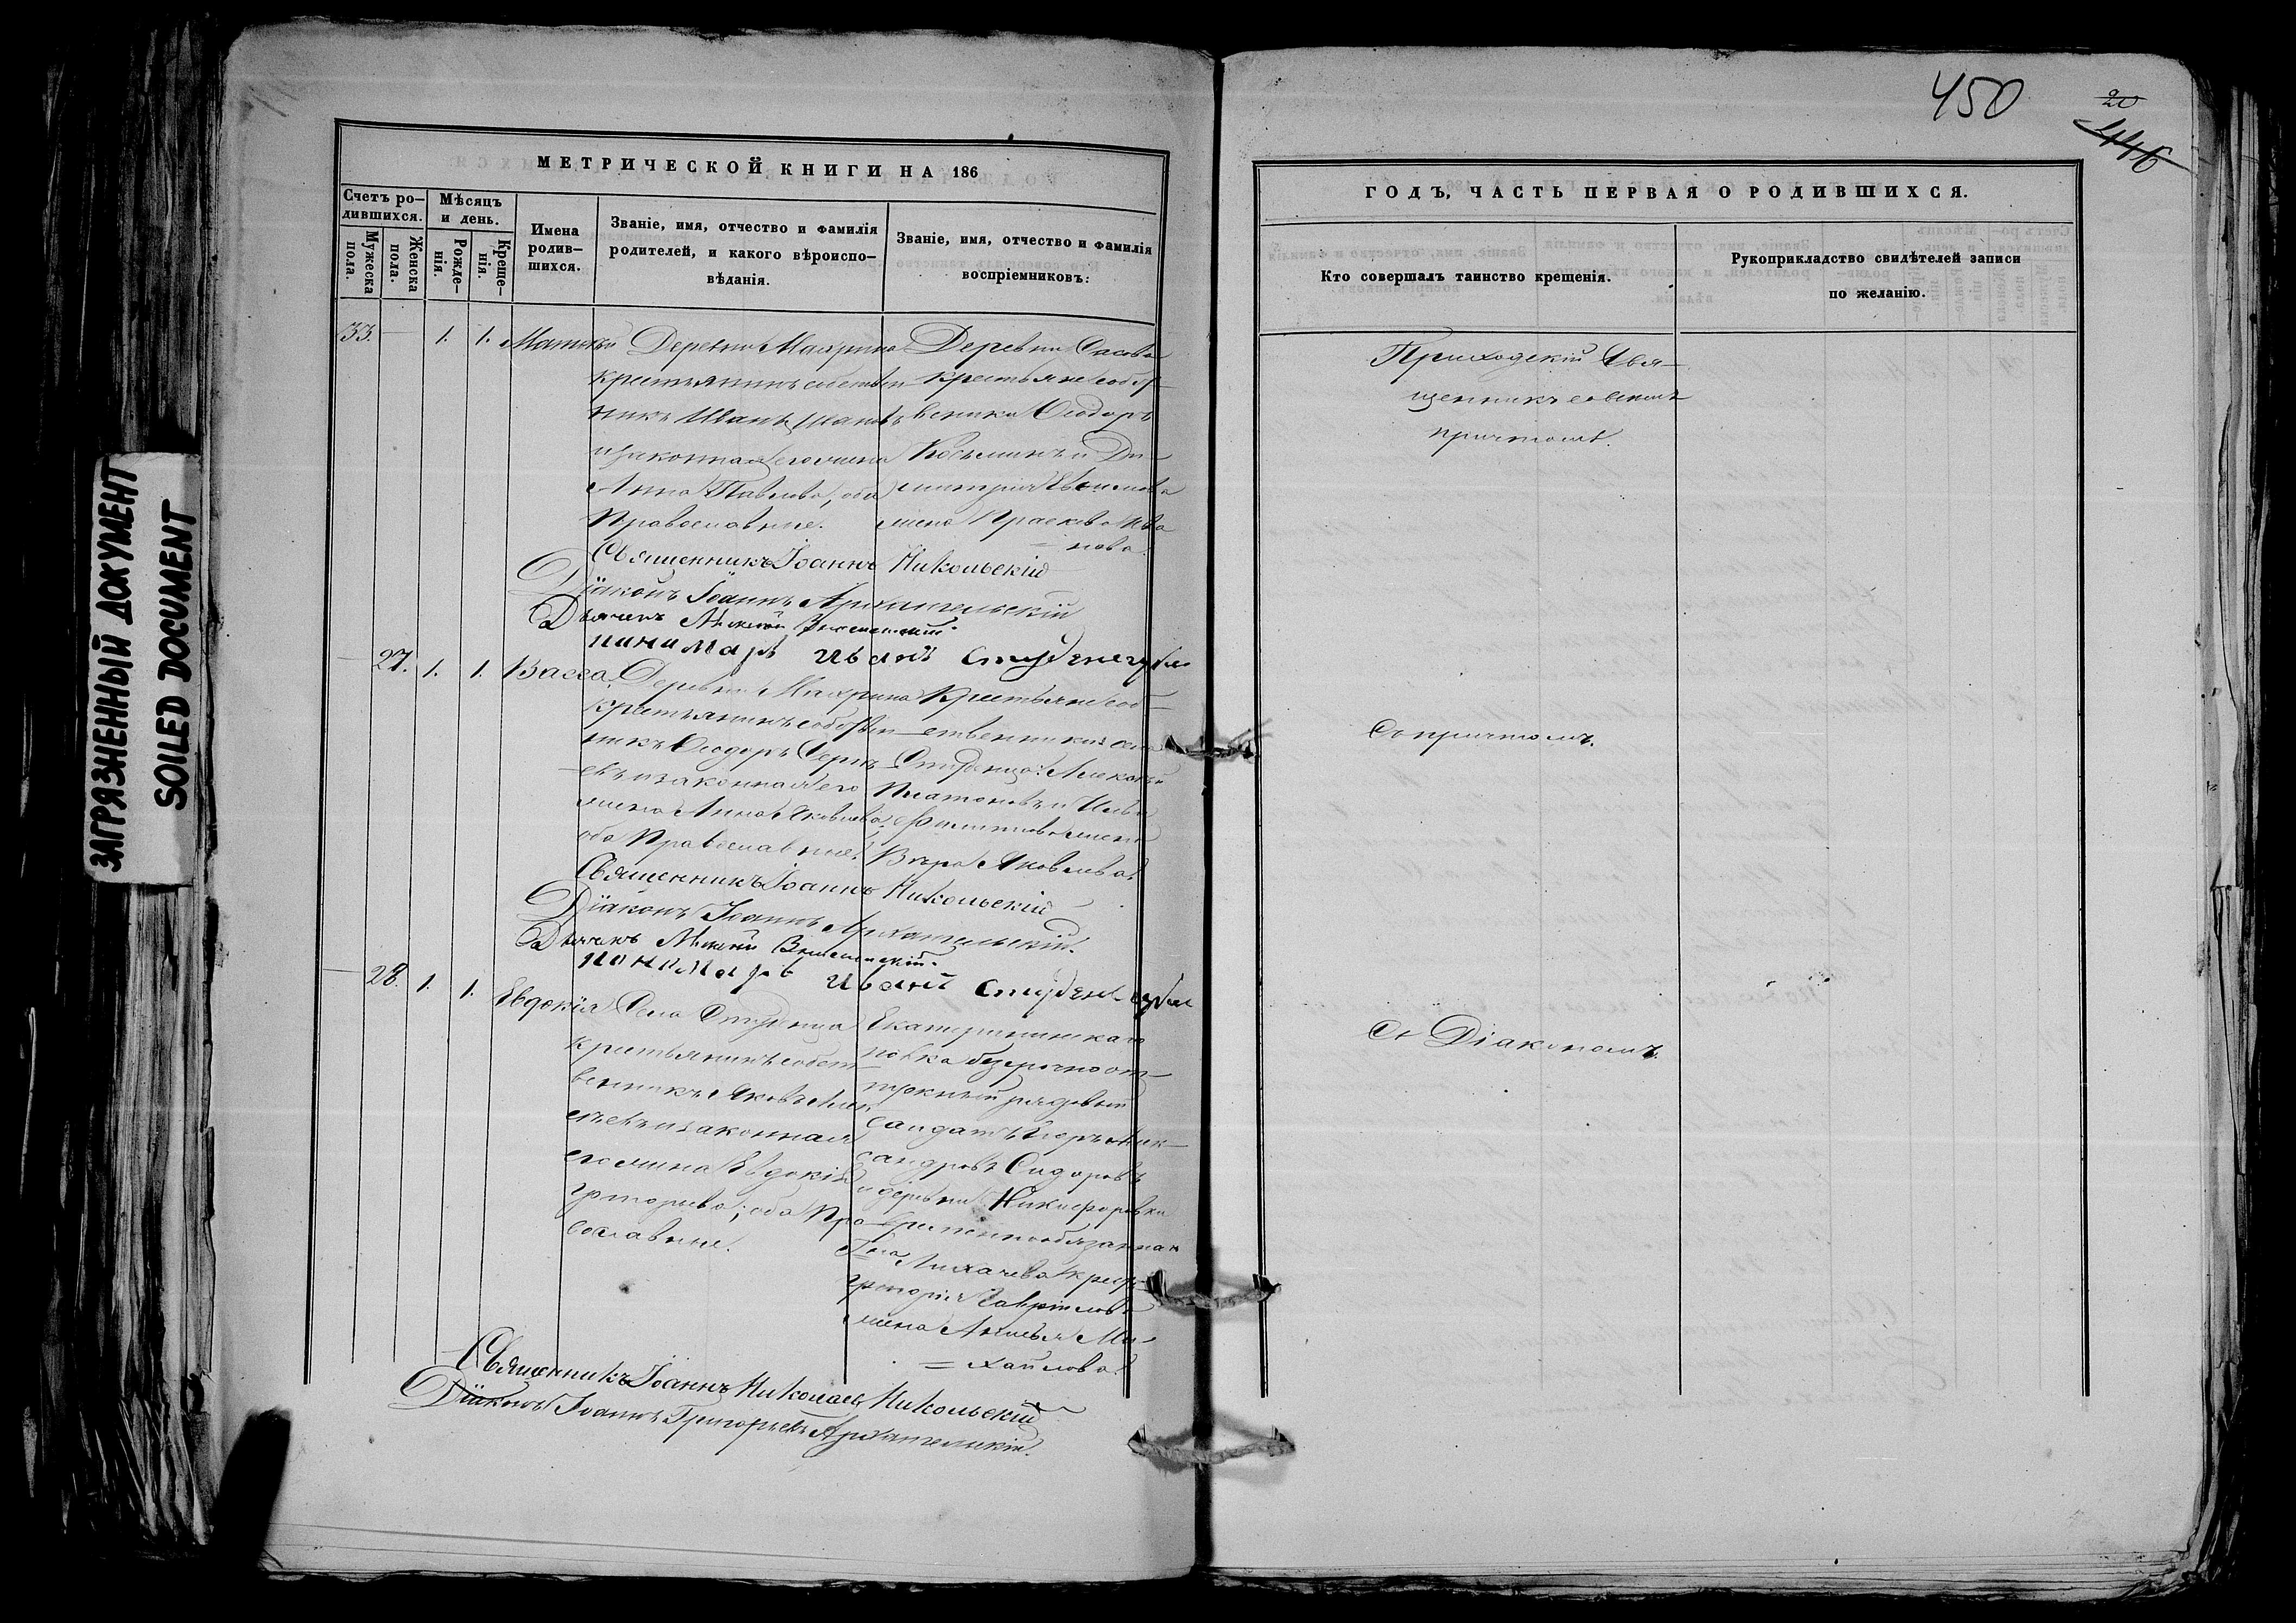 ЗАГРЯЗНЕННЫЙ ДОКУМЕНТ
SOILED DOCUMENT
МЕТРИЧЕСКОЙ КНИГИ НА 186
Счетъ ро-
дившихся.
Мужеска
пола.
Женска
пола.
Мѣсяцъ
и день.
Рожде-
нія.
Креще-
нія.
Имена
родив-
шихся.
Званіе, имя, отчество и фамилія
родителей, и какого вѣроиспо-
вѣданія.
Званіе, имя, отчество и фамилія
воспріемниковъ:
33. — 1. 1.
Деревни Махрина
крестьянинъ собствен
никъ Иванъ
и законная его жена
Анна Павлова, оба
Православные.
Деревни
крестьяне собст-
венники Ѳеодоръ
Косьминъ и Ди-
митрія
жена Праскева Ива
= нова.
Священникъ Іоаннъ Никольскій
Діаконъ Іоаннъ Архангельскій
Дьячекъ Алексѣй
пономарь Иванъ
— 27. 1. 1. Васса
Деревни Махрина
крестьянинъ собствен
никъ Ѳеодоръ Серге
евъ и законная его
жена Анна Яковлева,
оба Православные.
Крестьяне соб-
ственники села
Студенца: Алексѣй
Платоновъ и Ильи
Филиппова жена
Вѣра Яковлева.
Священникъ Іоаннъ Никольскій
Діаконъ Іоаннъ Архангельскій.
Дьячекъ Алексѣй
пономарь Иванъ
— 28. 1. 1. Евдокія
Села Студенца
крестьянинъ собст-
венникъ Яковъ Алек
сѣевъ и законная
его жена Евдокія
Григорьева; оба Пра-
вославные.
Екатерининскаго
полка безсрочно от-
пускный рядовый
солдатъ Алек-
сандровъ Сидоровъ
и деревни Никифоровки
временнообязанна
Гна Лихачева крест
Григорія Гаврилова
жена Ми-
= хайлова.
Священникъ Іоаннъ Николаевъ Никольскій
Діаконъ Іоаннъ Григорьевъ Архангельскій.
450
20
446
ГОДЪ, ЧАСТЬ ПЕРВАЯ О РОДИВШИХСЯ.
Кто совершалъ таинство крещенія.
Рукоприкладство свидѣтелей записи
по желанію.
Приходскій Свя-
щенникъ со всемъ
причтомъ.
Съ причтомъ.
Съ Діакономъ.